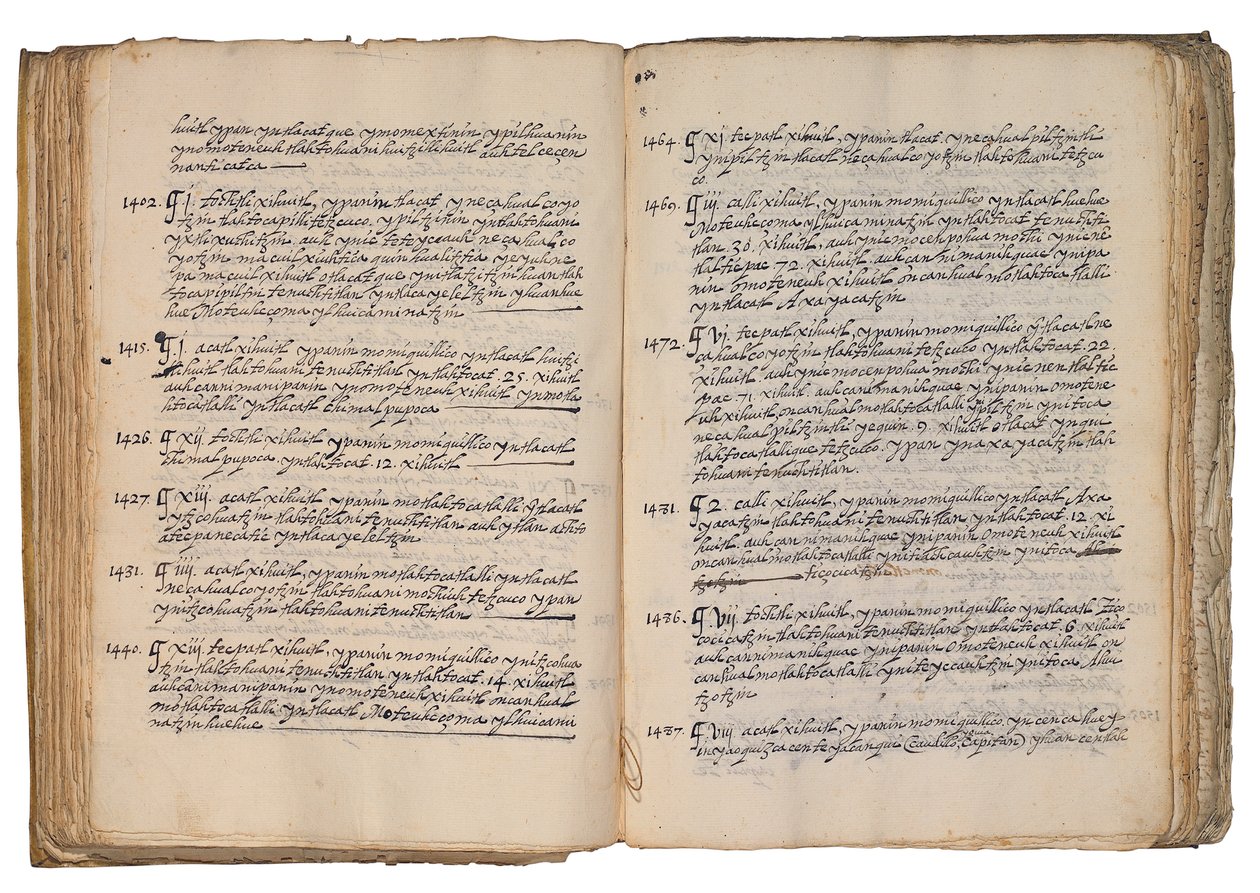 huitl ypan yntlacatque ynomextinin ypilhuanin
ynomoteneuh tlahtohuani huitzillihuitl auh tel ceçen
nanticatca
1402. ¶ j. tochtli xihuitl, ypanin tlacat ynecahualcoyo
tzin tlahtocapilli tetzcuco. ypiltzinin yntlahtohuani
yxtlixuchitzin. auh ynic tetoyccauh neçahualco
yotzin macuilxiuhtica quinhualittia yeyuhne
pa macuil xihuitl otlacatque yntlatzitzinhuan tlah
tocapipiltin tenuchtitlan yntlacayeleltzin yhuan hue
hue Moteuhcçoma ylhuicaminatzin
1415. ¶ j. acatl xihuitl ypanin momiquillico yntlacatl huitzi
lihuitl tlahtohuani tenuchtitlan yntlahtocat. 25. xihuitl
auh canniman ipanin ynomoteneuh xihuitl ynmotla
htocatlalli yntlacatl chimalpupoca
1426. ¶ xij. tochtli xihuitl ypanin momiquillico yntlacatl
chimalpupoca. yntlahtocat. 12. xihuitl
1427. ¶ xiij. acatl xihuitl, ypanin motlahtocatlalli ytlacatl
ytzcohuatzin tlahtohuani tenuchtitlan auh ytlan achto
atecpanecatic yntlacayeleltzin
1431. ¶ iiij. acatl xihuitl, ypanin motlahtocatlalli yntlacatl
neçahualcoyotzin tlahtohuani mochiuh tetzcuco ypan
ynitzcohuatzin tlahtohuani tenuchtitlan
1440. ¶ xiij. tecpatl xihuitl, ypanin momiquillico ynitzcohua
tzin tlahtohuani tenuchtitlan yntlahtocat. 14. xihuitl
auh canimanipanin ynomoteneuh xihuitl oncan hual
motlahtocatlalli yntlacatl Moteuhcçoma ylhuicami
natzin huehue
1464. ¶ xj. tecpatl xihuitl, ypanin tlacat. yneçahualpiltzintli
ynipiltzin tlacatl neçahualcoyotzin tlahtohuani tetzcu
co.
1469. ¶ iij. calli xihuitl, ypanin momiquillico yntlacatl huehue
Moteuhcçoma ylhuicaminatzin yntlahtocat tenuchti
tlan. 30. xihuitl, auh ynic mocenpohua mochi ynicne
tlalticpac 72. xihuitl. auh canniman ihquac ynipa
nin omoteneuh xihuitl oncan hual motlahtocatlalli
yntlacatl Axayacatzin
1472. ¶ vj. tecpatl xihuitl, ypanin momiquillico ytlacatl ne
çahualcoyotzin tlahtohuani tetzcuco yntlahtocat. 22.
xihuitl. auh ynic mocenpohua mochi ynicnen tlaltic
pac 71. xihuitl. auh canimanihquac ynipanin omotene
uh xihuitl, oncan hual motlahtocatlalli ypiltzin ynitoca
neçahualpiltzintli yequin. 9. xihuitl otlacat ynqui
tlahtocatlallique tetzcuco. ypan ynaxayacatzin tlah
tohuani tenuchtitlan.
1481. ¶ 2. calli xihuitl, ypanin momiquillico yntlacatl Axa
yacatzin tlahtohuani tenuchtitlan yntlahtocat. 12 xi
huitl. auh can nimanihquac ynipanin omoteneuh xihuitl
oncan hual motlahtocatlalli ynitiachcauhtzin ynitoca
ticocicatzin
1486. ¶ vij. tochtli xihuitl, ypanin momiquillico yntlacatl tico
cicatzin tlahtohuani tenuchtitlan yntlahtocat. 6. xihuitl
auh canniman ihquac ynipanin omoteneuh xihuitl on
can hual motlahtocatlalli yniteyccauhtzin ynitoca. Ahui
tzotzin
1487. ¶ viij acatl xihuitl, ypanin momiquillico. yn cenca huey
inyaoquizcacenteyacanqui (caudillo, Capitan) yhuan centlal